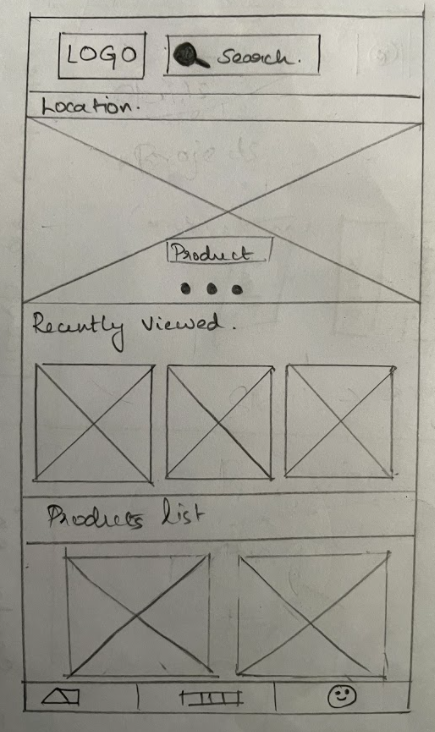 LOGO
Search.
Location.
Product
Recently viewed.
Products list